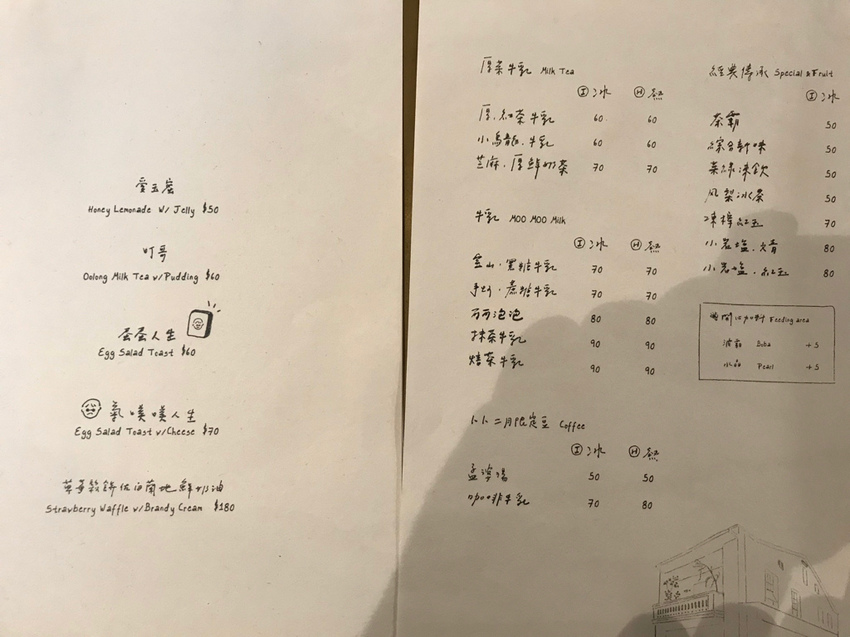 愛玉蜜
Honey Lemonade w/ Jelly $50
叮哥
Oolong Milk Tea w/Pudding $60
蛋蛋人生
Egg Salad Toast $60
氣噗噗人生
Egg Salad Toast w/Cheese $70
英哥鬆餅佐白蘭地鮮奶油
Strawberry Waffle w/Brandy Cream $180
厚茶牛乳 Milk Tea
I 冰 H 熱
厚.紅茶牛乳 60 60
小烏龍.牛乳 60 60
芝麻.厚鮮奶茶 70 70
牛乳 MOO MOO Milk
I 冰 H 熱
雲山.黑糖牛乳 70 70
手炒.蔗糖牛乳 70 70
可可泡泡 80 80
抹茶牛乳 90 90
焙茶牛乳 90 90
二月限定豆 Coffee
I 冰 H 熱
孟婆湯 50 50
咖啡牛乳 70 80
經典傳承 Special & Fruit
I 冰
茶霸 50
綜合軒味 50
菜綠凍飲 50
鳳梨冰茶 50
凍檸紅玉 70
小岩塩.文青 80
小岩塩.紅玉 80
Feeding area
波霸 Boba +5
小品 Pearl +5